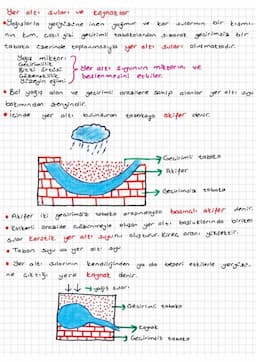 Yer altı suları ve kaynaklar
• Yağışlarla yeryüzüne inen yağmur ve kar sularının bir kısmı-
nın kum, çakıl gibi geçirimli tabakalardan sızarak geçirimsiz bir
tabaka üzerinde toplanmasıyla yer altı suları oluşmaktadır.
Yağış miktarı
Geçirimlilik
Bitki örtüsü
Gözeneklilik
Yüzeyin eğimi
Yer altı suyunun miktarını ve
beslenmesini etkiler.
• Bol yağış alan ve geçirimli arazilere sahip alanlar yer altı suyu
bakımından zengindir.
• İçinde yer altı bulunduran tabakaya akifer denir.
Geçirimli tabaka
Akifer
Geçirimsiz tabaka
• Akifer iki geçirimsiz tabaka arasındaysa basınçlı akifer denir.
• Kalkerli arazide çözünmeyle oluşan yer altı boşluklarında biriken
sular karstik yer altı suyunu oluşturur. Kireç oranı yüksektir.
• Taban suyu da yer altı suyu
• Yer altı sularının kendiliğinden ya da beşeri etkilerle yeryüzü-
ne çıktığı yere kaynak denir.
yağış suları
Geçirimli tabaka
Kaynak
Geçirimsiz tabaka